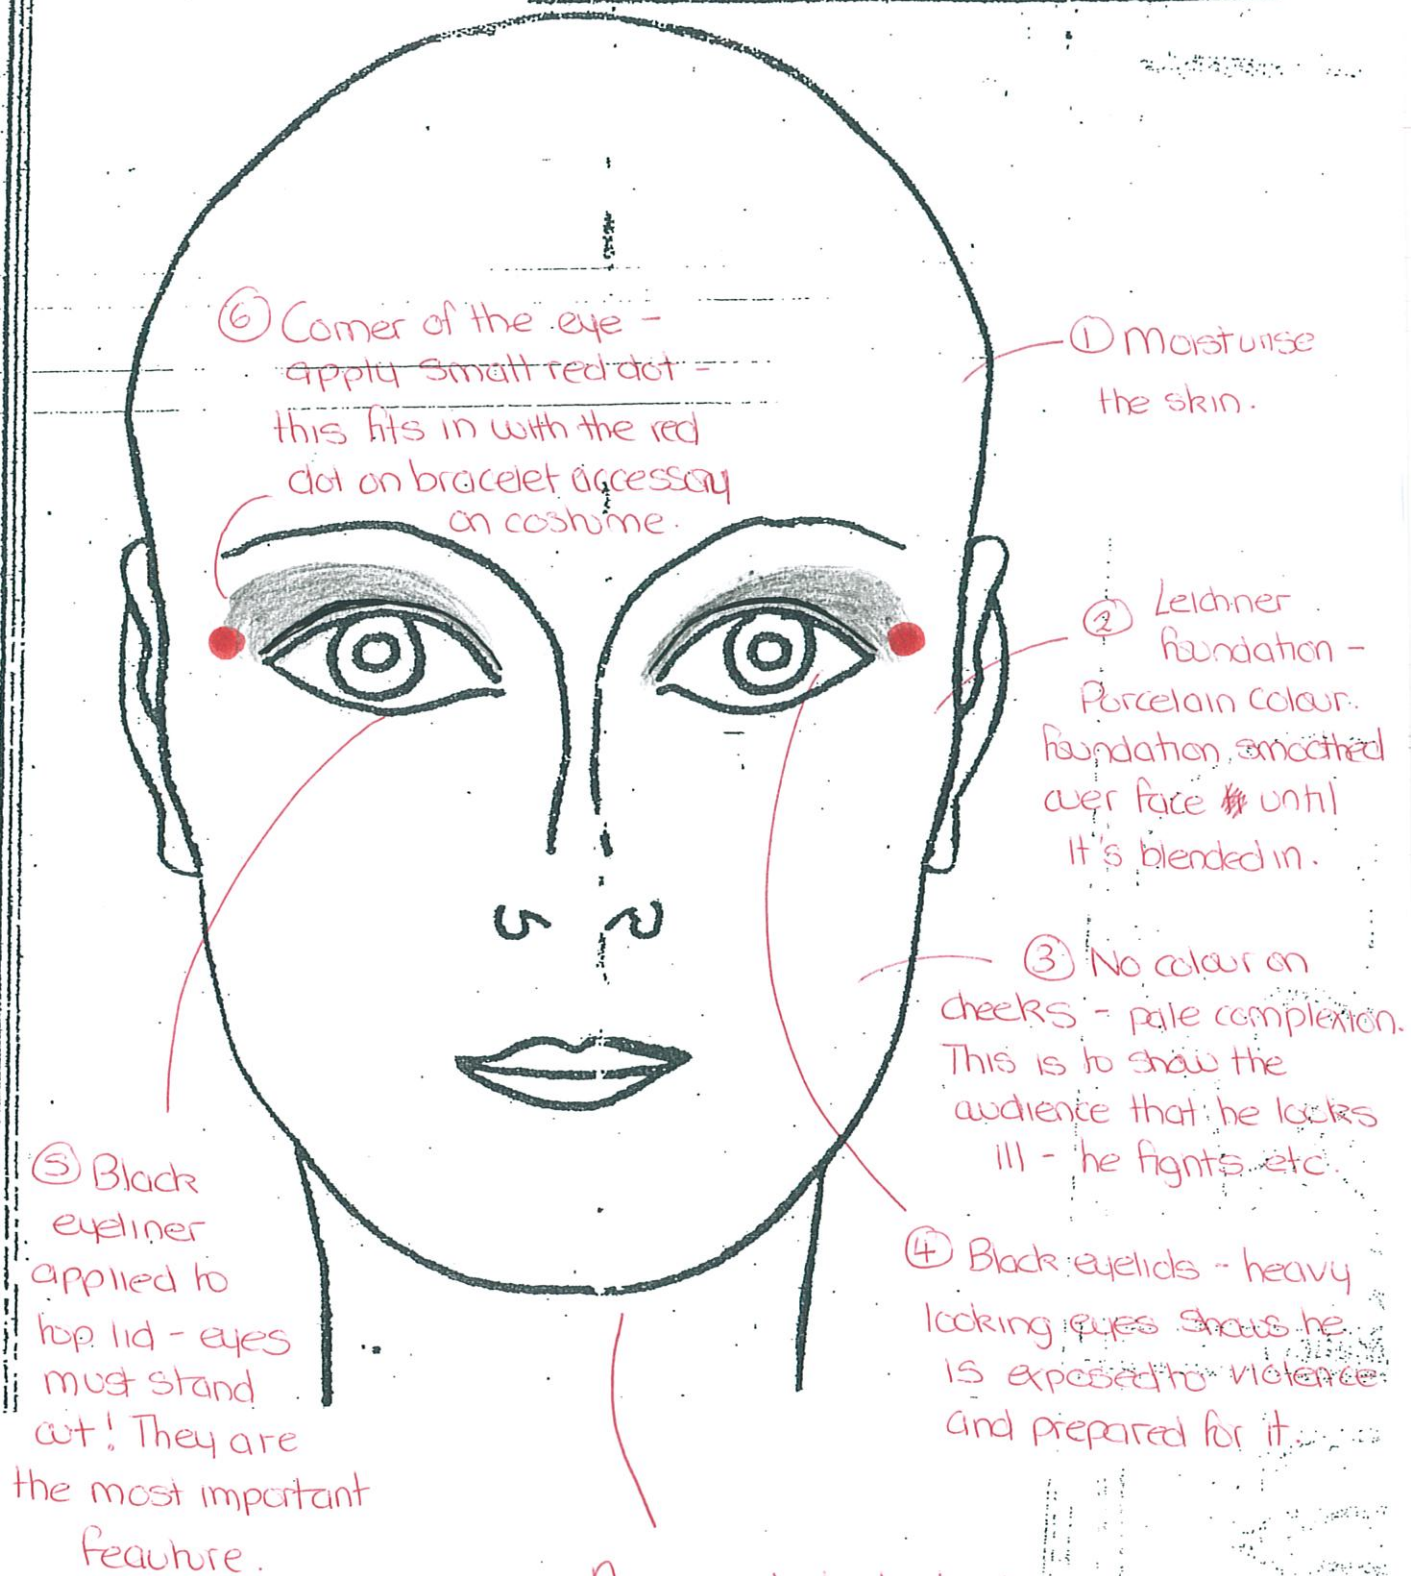 ⑥ Corner of the eye -
apply small red dot -
this fits in with the red
dot on bracelet accessory
on costume.
① Moisturise
the skin.
② Leichner
foundation -
Porcelain colour.
foundation smoothed
over face until
It's blended in.
③ No colour on
cheeks - pale complexion.
This is to show the
audience that he looks
ill - he fights etc.
④ Black eyelids - heavy
looking eyes shows he
is exposed to violence
and prepared for it.
⑤ Black
eyeliner
applied to
top lid - eyes
must stand
out! They are
the most important
feauture.